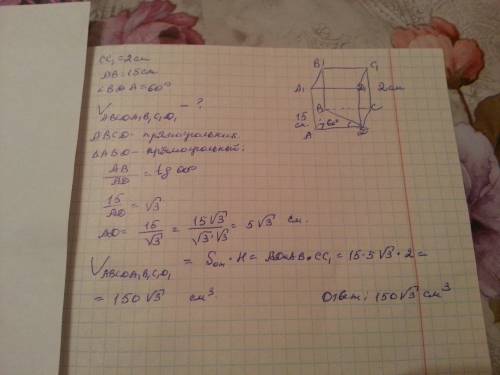 CC₁ = 2 см
AB = 15 см
∠BDA = 60°
V ABCDA₁B₁C₁D₁ - ?
ABCD - прямоугольник
ΔABD - прямоугольный:
AB/AD = tg 60°
15/AD = √3
AD = 15/√3 = 15√3/√3·√3 = 5√3 см.
V ABCDA₁B₁C₁D₁ = Sосн · H = AD·AB·CC₁ = 15·5√3·2 =
= 150√3 см³
Ответ: 150√3 см³
B₁ C₁
A₁ 2 см
B C
15 см 60°
A D